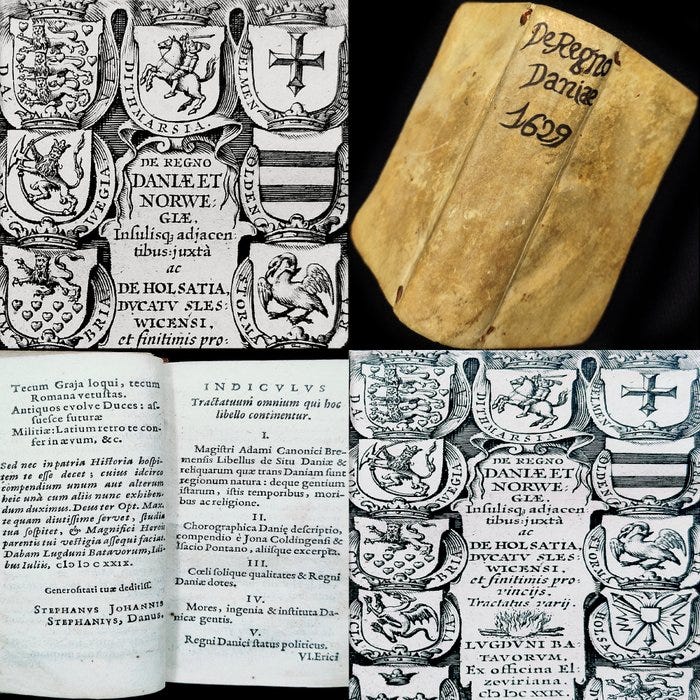 DITHMARSIA.
DELMENH
DE REGNO
DANIÆ ET
NORWE-
GIÆ,
Insulisq; adjacen
tibus: juxtà
ac
DE HOLSATIA,
DVCATV SLES-
WICENSI,
et finitimis pro-
NOR
VEGIA
OLDEN
BURG
BRIA
STORM
De Regno
Daniæ
1629
Tecum Graja loqui, tecum
Romana vetustas.
Antiquos evolve Duces: as-
suesce futuræ
Militiæ: Latium retro te con-
fer in ævum, &c.
Sed nec in patria Historia hospi-
tem te esse decet; cuius idcirco
compendium unum aut alterum
heic unà cum aliis nunc exhiben-
dum duximus. Deus ter Opt. Max.
te quam diutissime servet, studia
tua sospitet, & Magnifici Herois
parentis tui vestigia assequi faciat.
Dabam Lugduni Batavorum, Idi-
bus Iuliis, cIↃ IↃ c XXIX.
Generositati tuæ deditiss.
STEPHANVS JOHANNIS
STEPHANIVS, Danus.
INDICVLVS
Tractatuum omnium qui hoc
libello continentur.
I.
Magistri Adami Canonici Bre-
mensis Libellus de Situ Daniæ &
reliquarum quæ trans Daniam sunt
regionum natura: deque gentium
istarum, istis temporibus, mori-
bus ac religione.
II.
Chorographica Danię descriptio,
compendio è Jona Coldingensi &
Isacio Pontano, aliisque excerpta.
III.
Cœli solique qualitates & Regni
Daniæ dotes.
IV.
Mores, ingenia & instituta Da-
nicæ gentis.
V.
Regni Danici status politicus.
VI. Erici
DITHMARSIA.
DELMEN
DE REGNO
DANIÆ ET
NORWE-
GIÆ,
Insulisq; adjacen
tibus: juxtà
ac
DE HOLSATIA,
DVCATV SLES-
WICENSI,
et finitimis pro-
vincijs.
Tractatus varij.
VEGIA
OLDEN
BRIA
STOR
HOLSA
LVGDVNI BA-
TAVORVM,
Ex officina El-
zeviriana.
cIↃ IↃ c XXIX.